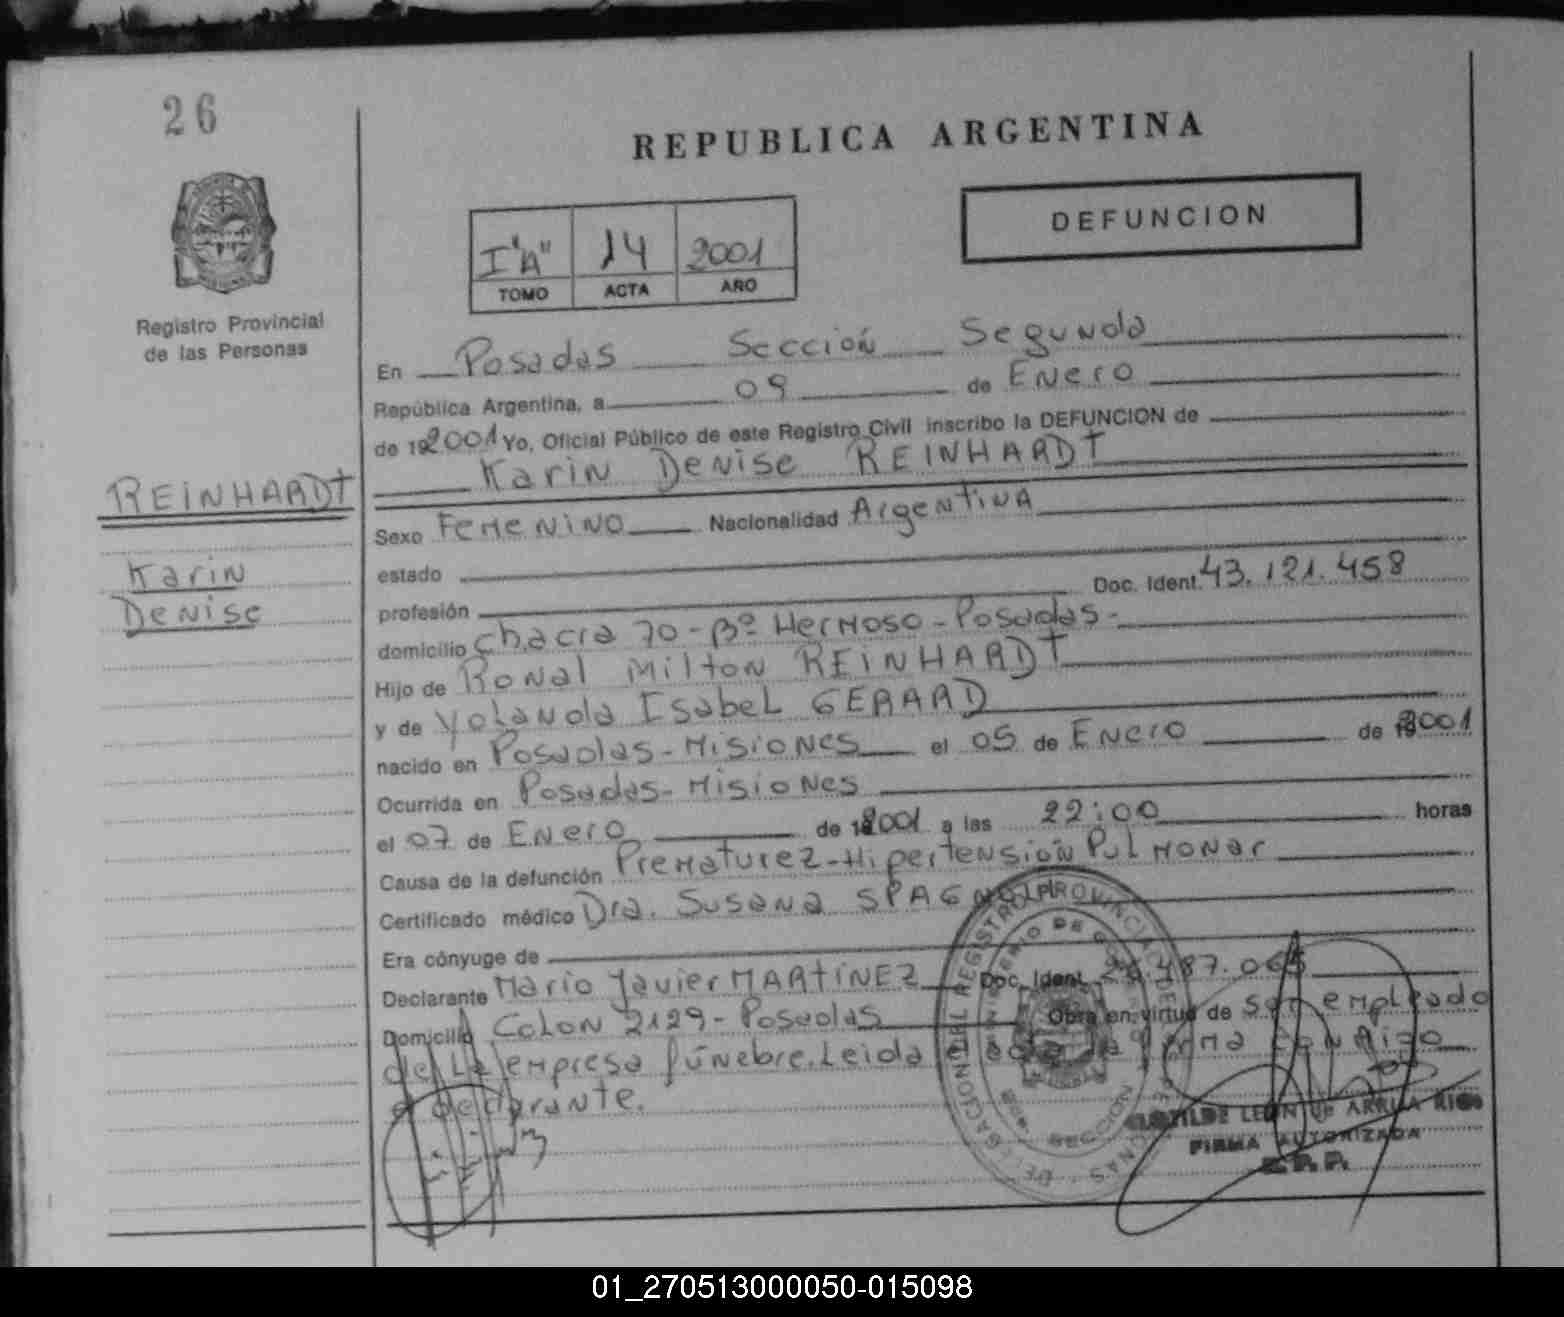 26
REPUBLICA ARGENTINA
DEFUNCION
I "A" 14 2001
TOMO ACTA AÑO
Registro Provincial
de las Personas
En Posadas Sección Segunda
República Argentina, a 09 de Enero
de 192001 Yo, Oficial Público de este Registro Civil inscribo la DEFUNCION de
Karin Denise REINHARDT
REINHARDT
Karin
Denise
Sexo Femenino Nacionalidad Argentina
estado
profesión Doc. Ident. 43.121.458
domicilio Chacra 70 - Bº Hermoso - Posadas -
Hijo de Ronal Milton REINHARDT
y de Yolanda Isabel GERARD
nacido en Posadas - Misiones el 05 de Enero de 2001
Ocurrida en Posadas - Misiones
el 07 de Enero de 2001 a las 22:00 horas
Causa de la defunción Prematurez - Hipertensión Pulmonar
Certificado médico Dra. Susana
Era cónyuge de
Declarante Mario Javier MARTINEZ Doc. Ident.
Domicilio Colon 2129 - Posadas Obra en virtud de ser empleado
de la empresa fúnebre. Leida el acta la firma conmigo
el declarante.
FIRMA AUTORIZADA
01_270513000050-015098